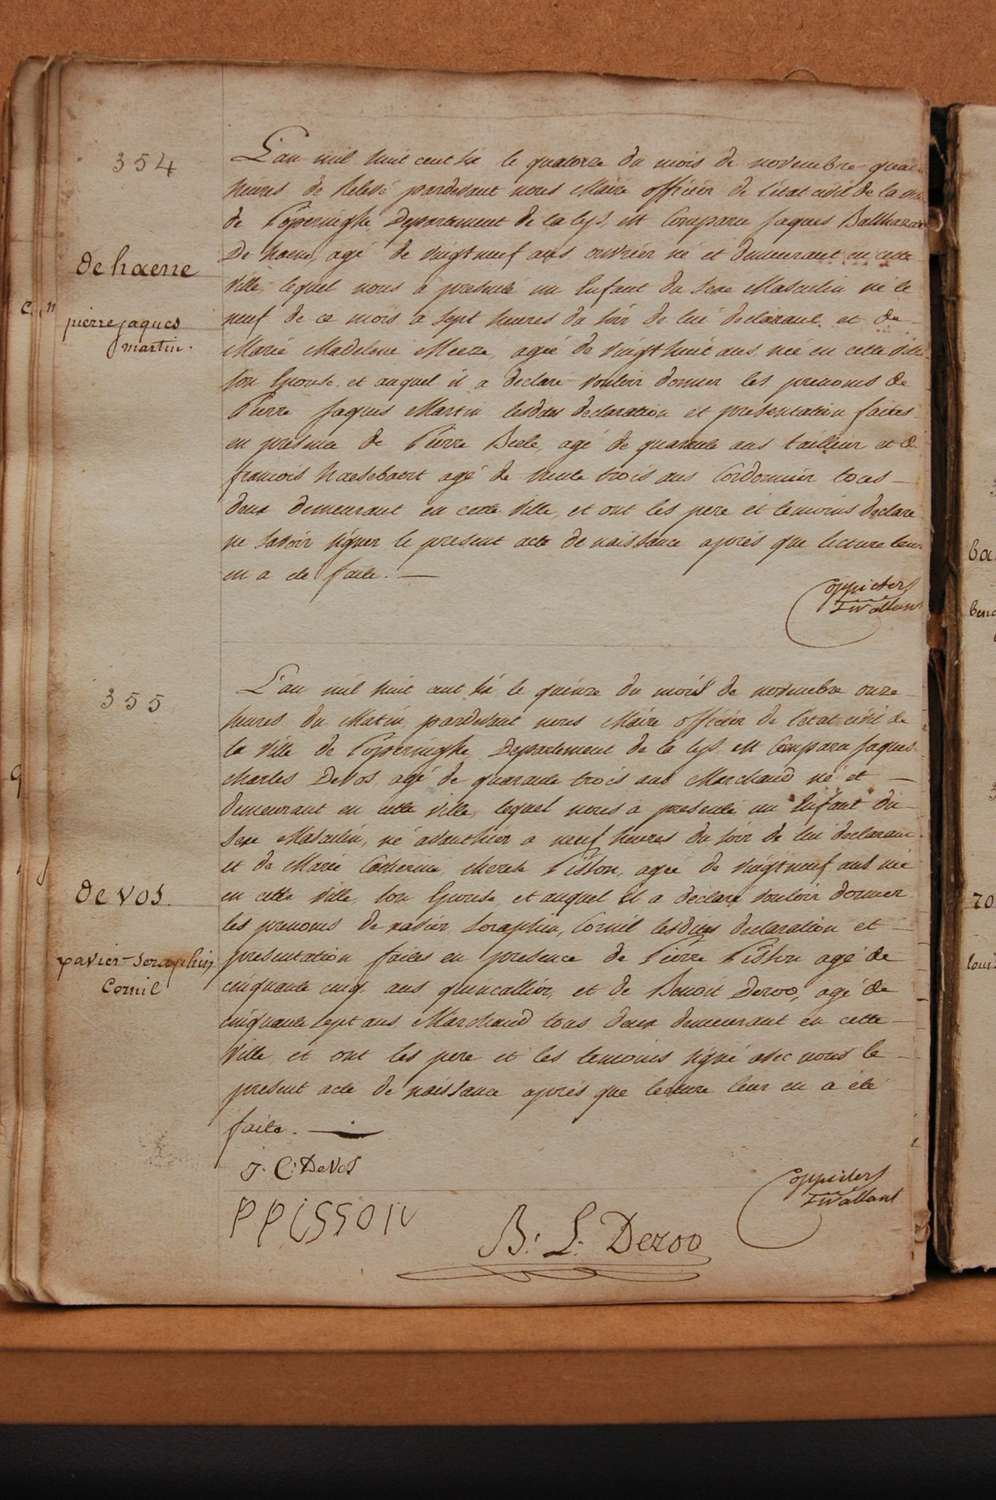 354
L'an mil huit cent dix le quatorze du mois de novembre quatre
heures de relevé pardevant nous Maire officier de l'état civil de la ville
de Poperinghe Departement de la Lys, est Comparu Jaques Balthazar
De haene, agé de vingtneuf ans ouvrier né et demeurant en cette
ville, lequel nous a presenté un Enfant du Sexe Masculin né le
neuf de ce mois a sept heures du soir de lui declarant et de
Marie Madeleine Meeze, agée de vingthuit ans, née en cette ville
son Epouse, et auquel il a declaré vouloir donner les prenoms de
Pierre Jaques Martin lesdites declaration et presentation faites
en presence de Pierre Beele, agé de quarante ans tailleur et de
francois haesebaert agé de trente trois ans Cordonnier tous
deux demeurant en cette ville, et ont les pere et temoins declaré
ne savoir signer le present acte de naissance après que lecture leur
en a été faite.
de haene
pierre jaques
martin.
355
L'an mil huit cent dix le quinze du mois de novembre onze
heures du Matin pardevant nous Maire officier de l'état civil de
la ville de Poperinghe, Departement de la Lys, est Comparu Jaques
Charles DeVos agé de quarante trois ans Marchand né et
demeurant en cette ville, lequel nous a presenté un Enfant du
Sexe Masculin, né avanthier a neuf heures du soir de lui declarant
et de Marie Catherine therese Pisson, agée de vingtneuf ans née
en cette ville, son Epouse, et auquel il a declaré vouloir donner
les prenoms de xavier, Seraphin, Cornil lesdites declaration et
presentation faites en presence de Pierre Pisson agé de
cinquante cinq ans quincallier, et de Benoit Deroo, agé de
cinquante sept ans Marchand tous deux demeurant en cette
ville, et ont les pere et les temoins signé avec nous le
present acte de naissance après que lecture leur en a été
faite.
de vos.
xavier-seraphin
Cornil
J. C. DeVos
P PISSON
B. L. Deroo